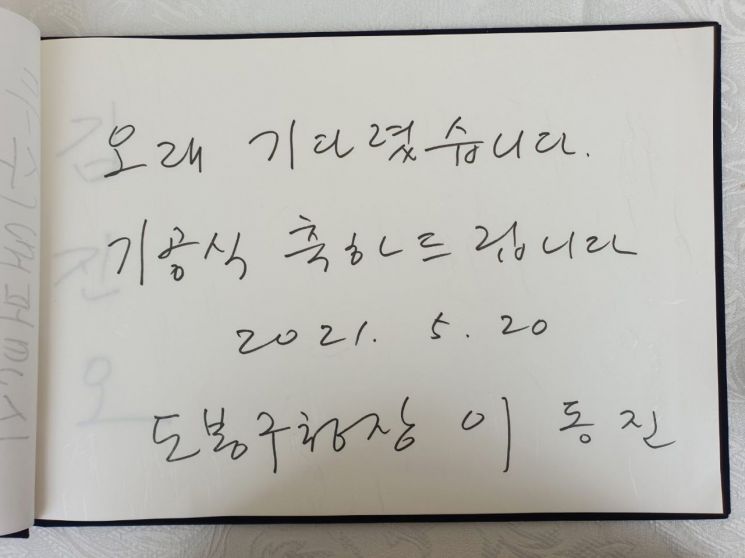 오래 기다렸습니다.
기공식 축하드립니다
2021. 5. 20
도봉구청장 이동진